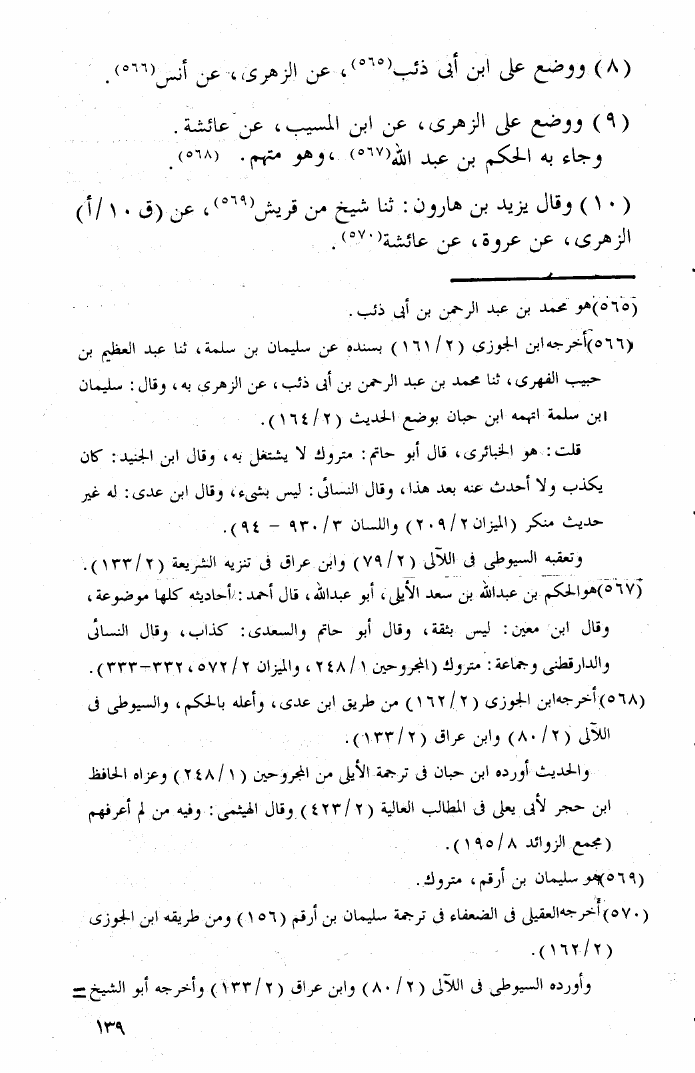 (٨) ووضع على ابن أبى ذئب(٥٦٥)، عن الزهرى، عن أنس(٥٦٦).
(٩) ووضع على الزهرى، عن ابن المسيب، عن عائشة.
وجاء به الحكم بن عبد الله(٥٦٧)، وهو متهم. (٥٦٨).
(١٠) وقال يزيد بن هارون: ثنا شيخ من قريش(٥٦٩)، عن (ق ١٠/أ)
الزهرى، عن عروة، عن عائشة(٥٧٠).
(٥٦٥)هو محمد بن عبد الرحمن بن أبى ذئب.
(٥٦٦)أخرجه ابن الجوزى (١٦١/٢) بسنده عن سليمان بن سلمة، ثنا عبد العظيم بن
حبيب الفهرى، ثنا محمد بن عبد الرحمن بن أبى ذئب، عن الزهرى به، وقال: سليمان
ابن سلمة اتهمه ابن حبان بوضع الحديث (١٦٤/٢).
قلت: هو الخبائرى، قال أبو حاتم: متروك لا يشتغل به، وقال ابن الجنيد: كان
يكذب ولا أحدث عنه بعد هذا، وقال النسائى: ليس بشىء، وقال ابن عدى: له غير
حديث منكر (الميزان ٢٠٩/٢) واللسان ٩٣٠/٣ - ٩٤).
وتعقبه السيوطى فى اللآلى (٧٩/٢) وابن عراق فى تنزيه الشريعة (١٣٣/٢).
(٥٦٧)هو الحكم بن عبدالله بن سعد الأيلى، أبو عبدالله، قال أحمد: أحاديثه كلها موضوعة،
وقال ابن معين: ليس بثقة، وقال أبو حاتم والسعدى: كذاب، وقال النسائى
والدارقطنى وجماعة: متروك (المجروحين ٢٤٨/١، والميزان ٥٧٢/٢، ٣٣٢-٣٣٣).
(٥٦٨)أخرجه ابن الجوزى (١٦٢/٢) من طريق ابن عدى، وأعله بالحكم، والسيوطى فى
اللآلى (٨٠/٢) وابن عراق (١٣٣/٢).
والحديث أورده ابن حبان فى ترجمة الأيلى من المجروحين (٢٤٨/١) وعزاه الحافظ
ابن حجر لأبى يعلى فى المطالب العالية (٤٢٣/٢) وقال الهيثمى: وفيه من لم أعرفهم
(مجمع الزوائد ١٩٥/٨).
(٥٦٩)هو سليمان بن أرقم، متروك.
(٥٧٠)أخرجه العقيلى فى الضعفاء فى ترجمة سليمان بن أرقم (١٥٦) ومن طريقه ابن الجوزى
(١٦٢/٢).
وأورده السيوطى فى اللآلى (٨٠/٢) وابن عراق (١٣٣/٢) وأخرجه أبو الشيخ =
١٣٩